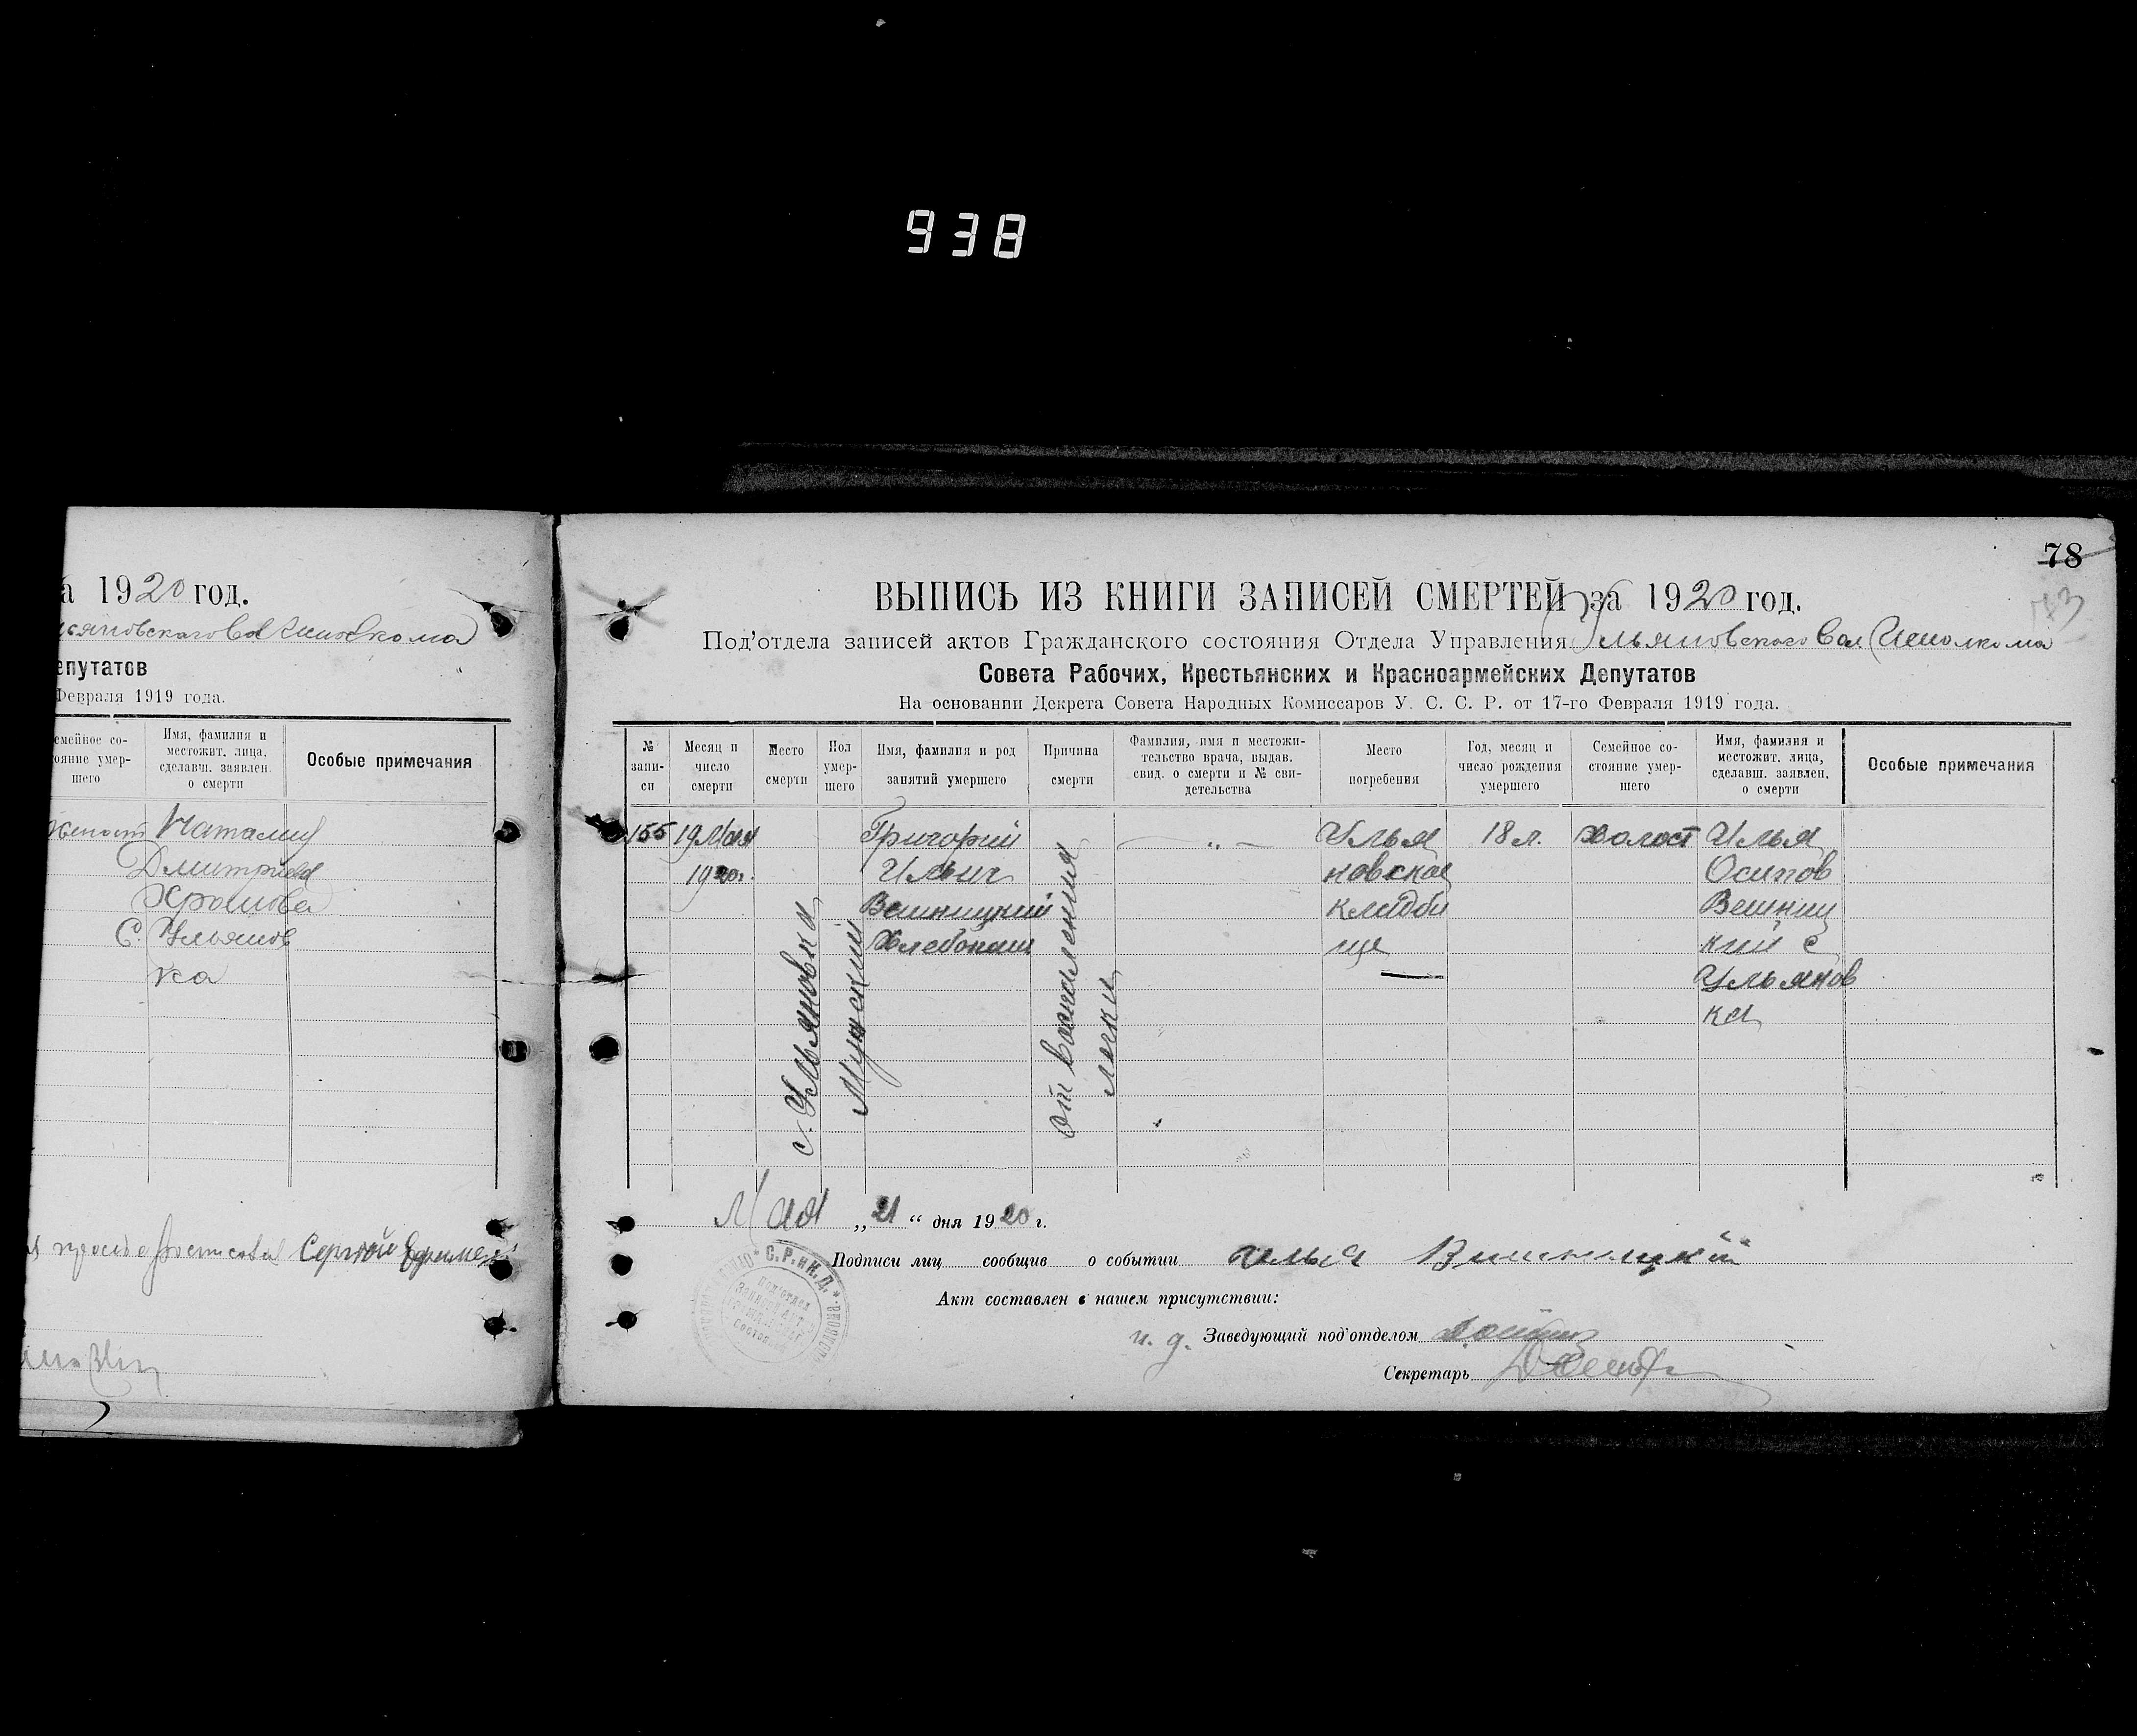 938
а 1920 год.
льяновскаго Вол Исполкома
епутатов
Февраля 1919 года.
емейное со-
ояние умер-
шего
Имя, фамилия и
местожит. лица,
сделавш. заявлен.
о смерти
Особые примечания
Наталия
Дмитриева
С. Ульянов
ка
Сергей
78
ВЫПИСЬ ИЗ КНИГИ ЗАПИСЕЙ СМЕРТЕЙ за 1920 год.
Под'отдела записей актов Гражданского состояния Отдела Управления Ульяновского Вол. Исполкома
Совета Рабочих, Крестьянских и Красноармейских Депутатов
На основании Декрета Совета Народных Комиссаров У. С. С. Р. от 17-го Февраля 1919 года.
№
запи-
си
Месяц и
число
смерти
Место
смерти
Пол
умер-
шего
Имя, фамилия и род
занятий умершего
Причина
смерти
Фамилия, имя и местожи-
тельство врача, выдав.
свид. о смерти и № сви-
детельства
Место
погребения
Год, месяц и
число рождения
умершего
Семейное со-
стояние умер-
шего
Имя, фамилия и
местожит. лица,
сделавш. заявлен.
о смерти
Особые примечания
155
19 Мая
1920 г.
с. Ульяновка
Мужский
Григорий
Ильич
Вешницкий
Хлебопаш
от воспаления
легки
— „ —
Улья
новское
кладби
ще
18 л.
Холост
Илья
Осипов
Вешниц
кий с
Ульянов
ка
Мая „21“ дня 1920 г.
Подписи лиц сообщив о событии Илья Вишницкий
Акт составлен в нашем присутствии:
и. д. Заведующий под'отделом
Секретарь